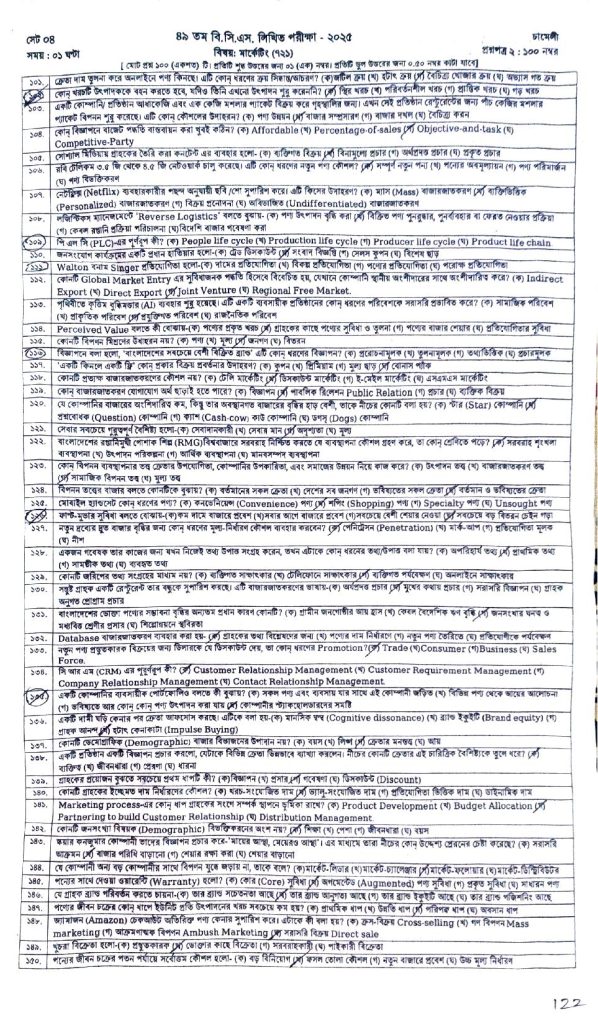 সেট ০৪
৪৯ তম বি.সি.এস. লিখিত পরীক্ষা - ২০২৫
চামেলী
সময় : ০১ ঘন্টা
বিষয়: মার্কেটিং (৭২১)
প্রশ্নপত্র ২ : ১০০ নম্বর
[ মোট প্রশ্ন ১০০ (একশত) টি। প্রতিটি শুদ্ধ উত্তরের জন্য ০১ (এক) নম্বর। প্রতিটি ভুল উত্তরের জন্য ০.৫০ নম্বর কাটা যাবে]
১০১. ক্রেতা দাম তুলনা করে অনলাইনে পণ্য কিনছে। এটি কোন্ ধরনের ক্রয় সিদ্ধান্ত/আচরণ? (ক)জটিল ক্রয় (খ) হঠাৎ ক্রয় (গ) বৈচিত্র্য খোঁজার ক্রয় (ঘ) অভ্যাস গত ক্রয়
কোন্ খরচটি উৎপাদককে বহন করতে হবে, যদিও তিনি এখনো উৎপাদন শুরু করেননি? (ক) স্থির খরচ (খ) পরিবর্তনশীল খরচ (গ) প্রান্তিক খরচ (ঘ) গড় খরচ
১০৩. একটি কোম্পানি/ প্রতিষ্ঠান আধাকেজি এবং এক কেজি মশলার প্যাকেট বিক্রয় করে গৃহস্থালির জন্য। এখন সেই প্রতিষ্ঠান রেস্টুরেন্টের জন্য পাঁচ কেজির মশলার
প্যাকেট বিপনন শুরু করেছে। এটি কোন্ কৌশলের উদাহরণ? (ক) পণ্য উন্নয়ন (খ) বাজার সম্প্রসারণ (গ) বাজার দখল (ঘ) বৈচিত্র্য করন
১০৪. কোন্ বিজ্ঞাপনে বাজেট পদ্ধতি বাস্তবায়ন করা খুবই কঠিন? (ক) Affordable (খ) Percentage-of-sales (গ) Objective-and-task (ঘ)
Competitive-Party
১০৫. সোশ্যাল মিডিয়ায় গ্রাহকের তৈরি করা কনটেন্ট এর ব্যবহার হলো- (ক) ব্যক্তিগত বিক্রয় (খ) বিনামূল্যে প্রচার (গ) অর্থপ্রদত্ত প্রচার (ঘ) প্রকৃত প্রচার
১০৬. রবি টেলিকম ৩.৫ জি থেকে ৪.৫ জি নেটওয়ার্ক চালু করেছে। এটি কোন্ ধরনের নতুন পণ্য কৌশল? (ক) সম্পূর্ণ নতুন পন্য (খ) পণ্যের অবমূল্যায়ন (গ) পণ্য পরিমার্জন
(ঘ) পণ্য বিভক্তিকরণ
১০৭. নেটফ্লিক্স (Netflix) ব্যবহারকারীর পছন্দ অনুযায়ী ছবি /শো সুপারিশ করে। এটি কিসের উদাহরণ? (ক) ম্যাস (Mass) বাজারজাতকরণ (খ) ব্যক্তিভিত্তিক
(Personalized) বাজারজাতকরণ (গ) বিক্রয় প্রণোদনা (ঘ) অবিভাজিত (Undifferentiated) বাজারজাতকরণ
১০৮. লজিস্টিকস ম্যানেজমেন্টে 'Reverse Logistics' বলতে বুঝায়- (ক) পণ্য উৎপাদন বৃদ্ধি করা (খ) বিক্রিত পণ্য পুনরুদ্ধার, পুনর্ব্যবহার বা ফেরত নেওয়ার প্রক্রিয়া
(গ) কেবল রপ্তানি প্রক্রিয়া পরিচালনা (ঘ)বিদেশে বাজার গবেষণা করা
১০৯. পি এল সি (PLC)-এর পূর্ণরূপ কী? (ক) People life cycle (খ) Production life cycle (গ) Producer life cycle (ঘ) Product life chain
১১০. জনসংযোগ কার্যক্রমের একটি প্রধান হাতিয়ার হলো-(ক) ট্রেড ডিসকাউন্ট (খ) সংবাদ বিজ্ঞপ্তি (গ) সেলস কুপন (ঘ) বিশেষ ছাড়
১১১. Walton বনাম Singer প্রতিযোগিতা হলো-(ক) দামের প্রতিযোগিতা (খ) বিকল্প প্রতিযোগিতা (গ) পণ্যের প্রতিযোগিতা (ঘ) পরোক্ষ প্রতিযোগিতা
১১২. কোনটি Global Market Entry এর সুবিধাজনক পদ্ধতি হিসেবে বিবেচিত হয়, যেখানে কোম্পানি স্থানীয় অংশীদারের সাথে অংশীদারিত্ব করে? (ক) Indirect
Export (খ) Direct Export (গ) Joint Venture (ঘ) Regional Free Market.
১১৩. পৃথিবীতে কৃত্রিম বুদ্ধিমত্তার (AI) ব্যবহার শুরু হয়েছে। এটি একটি ব্যবসায়ীক প্রতিষ্ঠানের কোন্ ধরণের পরিবেশকে সরাসরি প্রভাবিত করে? (ক) সামাজিক পরিবেশ
(খ) প্রাকৃতিক পরিবেশ (গ) প্রযুক্তিগত পরিবেশ (ঘ) রাজনৈতিক পরিবেশ
১১৪. Perceived Value বলতে কী বোঝায়-(ক) পণ্যের প্রকৃত খরচ (খ) গ্রাহকের কাছে পণ্যের সুবিধা ও তুলনা (গ) পণ্যের বাজার শেয়ার (ঘ) প্রতিযোগিতার সুবিধা
১১৫. কোনটি বিপণন মিশ্রণের উদাহরন নয়? (ক) পণ্য (খ) মূল্য (গ) জনগণ (ঘ) বিতরন
১১৬. বিজ্ঞাপনে বলা হলো, 'বাংলাদেশের সবচেয়ে বেশী বিক্রিত ব্র্যান্ড' এটি কোন্ ধরণের বিজ্ঞাপন? (ক) প্ররোচনামূলক (খ) তুলনামূলক (গ) তথ্যভিত্তিক (ঘ) প্রচারমূলক
১১৭. 'একটি কিনলে একটি ফ্রি' কোন্ প্রকার বিক্রয় প্রবর্তনার উদাহরণ? (ক) কুপন (খ) প্রিমিয়াম (গ) মূল্য ছাড় (ঘ) বোনাস প্যাক
১১৮. কোনটি প্রত্যক্ষ বাজারজাতকরণের কৌশল নয়? (ক) টেলি মার্কেটিং (খ) ডিসকাউন্ট মার্কেটিং (গ) ই-মেইল মার্কেটিং (ঘ) এসএমএস মার্কেটিং
১১৯. কোন্ বাজারজাতকরণ যোগাযোগ অর্থ ছাড়াই হতে পারে? (ক) বিজ্ঞাপন (খ) পাবলিক রিলেশন Public Relation (গ) প্রচার (ঘ) ব্যক্তিক বিক্রয়
১২০. যে কোম্পানির বাজারের অংশিদারিত কম, কিন্তু তার অবস্থানগত বাজারের বৃদ্ধির হার বেশী, তাকে নীচের কোনটি বলা হয়? (ক) স্টার (Star) কোম্পানি (খ)
প্রশ্নবোধক (Question) কোম্পানি (গ) ক্যাশ (Cash-cow) কাউ কোম্পানি (ঘ) ডগস্ (Dogs) কোম্পানি
১২১. সেবার সবচেয়ে গুরুত্বপূর্ণ বৈশিষ্ট্য হলো-(ক) সেবাদানকারী (খ) সেবার মান (গ) অদৃশ্যতা (ঘ) মূল্য
১২২. বাংলাদেশের রপ্তানিমুখী পোশাক শিল্প (RMG)বিশ্ববাজারে সরবরাহ নিশ্চিত করতে যে ব্যবস্থাপনা কৌশল গ্রহণ করে, তা কোন্ শ্রেণিতে পড়ে? (ক) সরবরাহ শৃংখল
ব্যবস্থাপনা (খ) উৎপাদন পরিকল্পনা (গ) আর্থিক ব্যবস্থাপনা (ঘ) মানবসম্পদ ব্যবস্থাপনা
১২৩. কোন্ বিপনন ব্যবস্থাপনার তত্ত্ব ক্রেতার উপযোগিতা, কোম্পানির উপকারিতা, এবং সমাজের উন্নয়ন নিয়ে কাজ করে? (ক) উৎপাদন তত্ত্ব (খ) বাজারজাতকরণ তত্ত্ব
(গ) সামাজিক বিপনন তত্ত্ব (ঘ) মূল্য তত্ত্ব
১২৪. বিপনন তত্ত্বের বাজার বলতে কোনটিকে বুঝায়? (ক) বর্তমানের সকল ক্রেতা (খ) দেশের সব জনগণ (গ) ভবিষ্যতের সকল ক্রেতা (ঘ) বর্তমান ও ভবিষ্যতের ক্রেতা
১২৫. মোবাইল হ্যান্ডসেট কোন্ ধরণের পণ্য? (ক) কনভেনিয়েন্স (Convenience) পণ্য (খ) শপিং (Shopping) পণ্য (গ) Specialty পণ্য (ঘ) Unsought পণ্য
ফার্স্ট-মুভার সুবিধা বলতে বোঝায়-(ক)কম দামে বাজারে প্রবেশ (খ)সবার আগে বাজারে প্রবেশ (গ)সবচেয়ে বেশী শেয়ার নেওয়া (ঘ)সবচেয়ে বড় বিতরন চেইন গড়া
১২৭. নতুন দ্রব্যের দ্রুত বাজার বৃদ্ধির জন্য কোন্ ধরনের মূল্য-নির্ধারণ কৌশল ব্যবহার করবেন? (ক) পেনিট্রেসন (Penetration) (খ) মার্ক-আপ (গ) প্রতিযোগিতা মূলক
(ঘ) নীশ
১২৮. একজন গবেষক তার কাজের জন্য যখন নিজেই তথ্য উপাত্ত সংগ্রহ করেন, তখন এটাকে কোন্ ধরনের তথ্য/উপাত্ত বলা যায়? (ক) অপরিহার্য তথ্য (খ) প্রাথমিক তথ্য
(গ) সাময়ীক তথ্য (ঘ) ব্যবহৃত তথ্য
১২৯. কোনটি জরিপের তথ্য সংগ্রহের মাধ্যম নয়? (ক) ব্যক্তিগত সাক্ষাৎকার (খ) টেলিফোনে সাক্ষাৎকার (গ) ব্যক্তিগত পর্যবেক্ষণ (ঘ) অনলাইনে সাক্ষাৎকার
১৩০. সন্তুষ্ট গ্রাহক একটি রেস্টুরেন্ট তার বন্ধুকে সুপারিশ করছে। এটি বাজারজাতকরণের ভাষায়-(ক) অর্থপ্রদত্ত প্রচার (খ) মুখের কথায় প্রচার (গ) সরাসরি বিজ্ঞাপন (ঘ) গ্রাহক
অনুগত প্রোগ্রাম প্রচার
১৩১. বাংলাদেশের ভোগ্য পণ্যের সম্ভাবনা বৃদ্ধির অন্যতম প্রধান কারণ কোনটি? (ক) গ্রামীন জনগোষ্ঠীর আয় হ্রাস (খ) কেবল বৈদেশিক ঋণ বৃদ্ধি (গ) জনসংখ্যার ঘনত্ব ও
মধ্যবিত্ত শ্রেণীর প্রসার (ঘ) শিল্পোন্নয়নে স্থবিরতা
১৩২. Database বাজারজাতকরণ ব্যবহার করা হয়- (ক) গ্রাহকের তথ্য বিশ্লেষণের জন্য (খ) পণ্যের দাম নির্ধারণে (গ) নতুন পণ্য তৈরিতে (ঘ) প্রতিযোগিকে পর্যবেক্ষণে
১৩৩. নতুন পণ্য প্রস্তুতকারক বিক্রয়ের জন্য ডিলারকে যে ডিসকাউন্ট দেয়, তা কোন্ ধরনের Promotion? (ক) Trade (খ)Consumer (গ)Business (ঘ) Sales
Force.
১৩৪. সি আর এম (CRM) এর পূর্ণরূপ কী? (ক) Customer Relationship Management (খ) Customer Requirement Management (গ)
Company Relationship Management (ঘ) Contact Relationship Management.
১৩৫. একটি কোম্পানির ব্যবসায়ীক পোর্টফোলিও বলতে কী বুঝায়? (ক) সকল পণ্য এবং ব্যবসায় যার সাথে এই কোম্পানী জড়িত (খ) বিভিন্ন পণ্য থেকে আয়ের আলোচনা
(গ) ভবিষ্যতে আর কোন্ কোন্ পণ্য উৎপাদন করা যায় (ঘ) কোম্পানীর স্ট্যাকহোলডারদের সমষ্টি
১৩৬. একটি দামী ঘড়ি কেনার পর ক্রেতা আফসোস করছে। এটিকে বলা হয়-(ক) মানসিক দ্বন্দ্ব (Cognitive dissonance) (খ) ব্র্যান্ড ইকুইটি (Brand equity) (গ)
গ্রাহক আনন্দ (ঘ) হটাৎ কেনাকাটা (Impulse Buying)
১৩৭. কোনটি ডেমোগ্রাফিক (Demographic) বাজার বিভাজনের উপাদান নয়? (ক) বয়স (খ) লিঙ্গ (গ) ক্রেতার মনস্তত্ত্ব (ঘ) আয়
১৩৮. একটি প্রতিষ্ঠান একটি বিজ্ঞাপন প্রচার করলো, যেটাকে বিভিন্ন ক্রেতা ভিন্নভাবে ব্যাখ্যা করলেন। নীচের কোনটি ক্রেতার এই চারিত্রিক বৈশিষ্ট্যকে তুলে ধরে? (ক)
ব্যক্তিত্ব (খ) জীবনধারা (গ) প্রেরণা (ঘ) ধারনা
১৩৯. গ্রাহকের প্রয়োজন বুঝতে সবচেয়ে প্রথম ধাপ কোনটি? (ক)বিজ্ঞাপন (খ) প্রসার (গ) গবেষণা (ঘ) ডিসকাউন্ট (Discount)
১৪০. কোনটি গ্রাহকের ইচ্ছেমত দাম নির্ধারণের কৌশল? (ক) খরচ-সংযোজিত দাম (খ) ভ্যালু-সংযোজিত দাম (গ) প্রতিযোগিতা ভিত্তিক দাম (ঘ) ডাইনামিক দাম
১৪১. Marketing process-এর কোন্ ধাপ গ্রাহকের সংগে সম্পর্ক স্থাপনে ভূমিকা রাখে? (ক) Product Development (খ) Budget Allocation (গ)
Partnering to build Customer Relationship (ঘ) Distribution Management.
১৪২. কোনটি জনসংখ্যা বিষয়ক (Demographic) বিভক্তিকরনের অংশ নয়? (ক) শিক্ষা (খ) পেশা (গ) জীবনধারা (ঘ) বয়স
১৪৩. স্কয়ার কনজুমার কোম্পানী তাদের বিজ্ঞাপন প্রচার করে-'মায়ের আস্থা, মেয়েরও আস্থা'। এর মাধ্যমে তারা নীচের কোন্ উদ্দেশ্য প্রেরনের চেষ্টা করেছে? (ক) সরাসরি
আক্রমন (খ) বাজার পরিধি বাড়ানো (গ) শেয়ার রক্ষা করা (ঘ) শেয়ার বাড়ানো
১৪৪. যে কোম্পানী অন্য বড় কোম্পানীর সাথে বিপনন যুদ্ধে জড়ায় না, তাকে বলে? (ক)মার্কেট-লিডার (খ)মার্কেট-চ্যালেঞ্জার (গ)মার্কেট-ফলোয়ার (ঘ)মার্কেট-ডিস্ট্রিবিউটর
১৪৫. পন্যের সাথে দেওয়া ওয়ারেন্টি (Warranty) হলো? (ক) কোর (Core) সুবিধা (খ) অগমেন্টেড (Augmented) পণ্য সুবিধা (গ) প্রকৃত সুবিধা (ঘ) সাধারন পণ্য
১৪৬. যে গ্রাহক ব্র্যান্ড পরিবর্তন করতে চায়না-(ক) তার ব্র্যান্ড সচেতনতা আছে (খ) তার ব্র্যান্ড আনুগত্য আছে (গ) তার ব্র্যান্ড ইকুইটি আছে (ঘ) তার ব্র্যান্ড পজিশনিং আছে
১৪৭. পণ্যের জীবন চক্রের কোন্ ধাপে ইউনিট প্রতি উৎপাদনের খরচ সবচেয়ে কম হয়? (ক) প্রাথমিক ধাপ (খ) উন্নতি ধাপ (গ) পরিপক্ক ধাপ (ঘ) অবসান ধাপ
১৪৮. অ্যামাজন (Amazon) চেকআউট অতিরিক্ত পণ্য কেনার সুপারিশ করে। এটাকে কী বলা হয়? (ক) ক্রস-বিক্রয় Cross-selling (খ) গণ বিপণন Mass
marketing (গ) আক্রমণাত্মক বিপনন Ambush Marketing (ঘ) সরাসরি বিক্রয় Direct sale
১৪৯. খুচরা বিক্রেতা হলো-(ক) প্রস্তুতকারক (খ) ভোক্তার কাছে বিক্রেতা (গ) সরবরাহকারী (ঘ) পাইকারী বিক্রেতা
১৫০. পন্যের জীবন চক্রের পতন পর্যায়ে সর্বোত্তম কৌশল হলো- (ক) বড় বিনিয়োগ (খ) ফসল তোলা কৌশল (গ) নতুন বাজারে প্রবেশ (ঘ) উচ্চ মূল্য নির্ধারণ
122